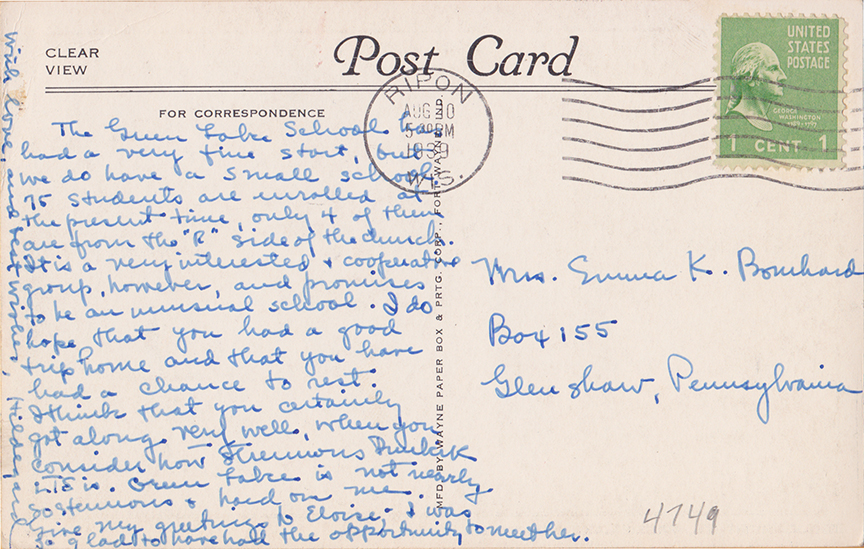 CLEAR
VIEW
Post Card
FOR CORRESPONDENCE
RIPON
AUG 30
5 PM
1939
WIS.
UNITED
STATES
POSTAGE
GEORGE
WASHINGTON
1 CENT 1
The Green Lake School has
had a very fine start, but
we do have a small school.
75 students are enrolled at
the present time, only 4 of them
are from the "R" side of the church.
It is a very interested & cooperative
group, however, and promises
to be an unusual school. I do
hope that you had a good
trip home and that you have
had a chance to rest.
I think that you certainly
got along very well, when you
consider how strenuous
LTS is. Green Lake is not nearly
so strenuous & hard on me.
Give my greetings to Eloise. I was
so glad to have had the opportunity to meet her.
With love, and best wishes, Hildegard
MFD. BY WAYNE PAPER BOX & PRTG. CORP., FORT WAYNE, IND.
Mrs. Emma K. Bomhard
Box 155
Glenshaw, Pennsylvania
4749